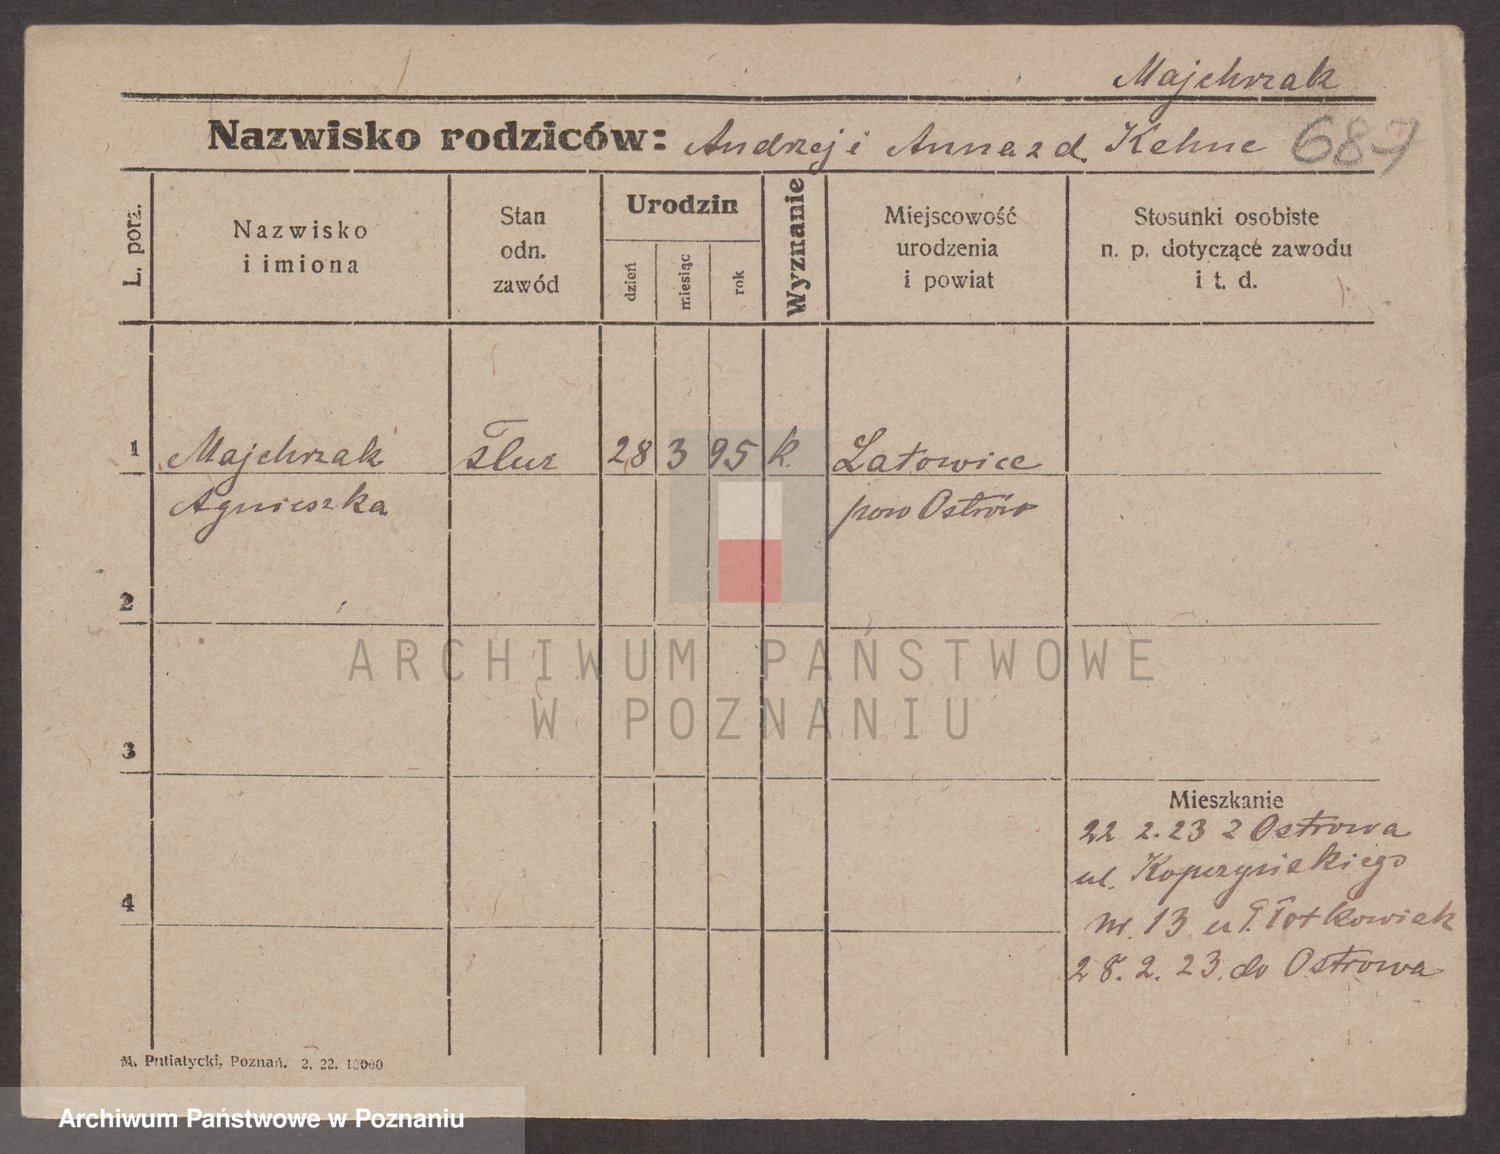 Majchrzak
Nazwisko rodziców: Andrzej i Anna z d. Kehne 687
L. porz.
Nazwisko
i imiona
Stan
odn.
zawód
Urodzin
dzień
miesiąc
rok
Wyznanie
Miejscowość
urodzenia
i powiat
Stosunki osobiste
n. p. dotyczące zawodu
i t. d.
1 Majchrzak służ 28 3 95 k. Latowice
Agnieszka pow Ostrów
2
3
4
Mieszkanie
22 2.23 z Ostrowa
ul.
nr. 13 u
28. 2. 23. do Ostrowa
M. Putiatycki, Poznań. 2. 22. 10000
ARCHIWUM PAŃSTWOWE
W POZNANIU
Archiwum Państwowe w Poznaniu